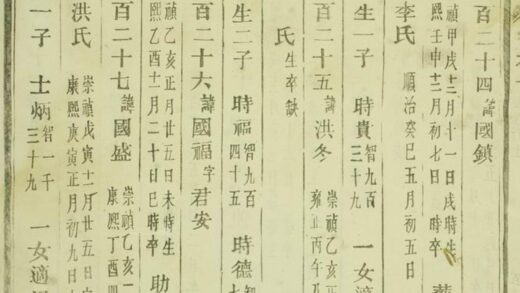 百二十四諱國鎮
禎甲戌十二月十一日戌時生
熙壬申十二月初七日 時卒
李氏 順治癸巳五月初五日
生一子 時貴 智九百三十九 一女適
百二十五諱洪冬 崇禎乙亥正
雍正丙午
氏 生卒缺
生二子 時福 智九百四十五 時德
百二十六諱國福字君安
禎乙亥正月廿五日未時生
熙乙酉十二月二十日巳時卒 助
百二十七諱國盛 崇禎乙亥
康熙丁酉
洪氏 崇禎戊寅十二月廿五日
康熙庚寅正月初九日
一子 士炳 智一千三十九 一女適